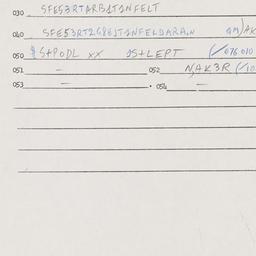 030 SFE53RTARB1T1NFELT
040 SFE53RT2G8EJT1NFELDARA,N
050 S+PODL xx JS+LEPT (/076 010
051 — 052 N,AK3R (/10
053 — • 054 —